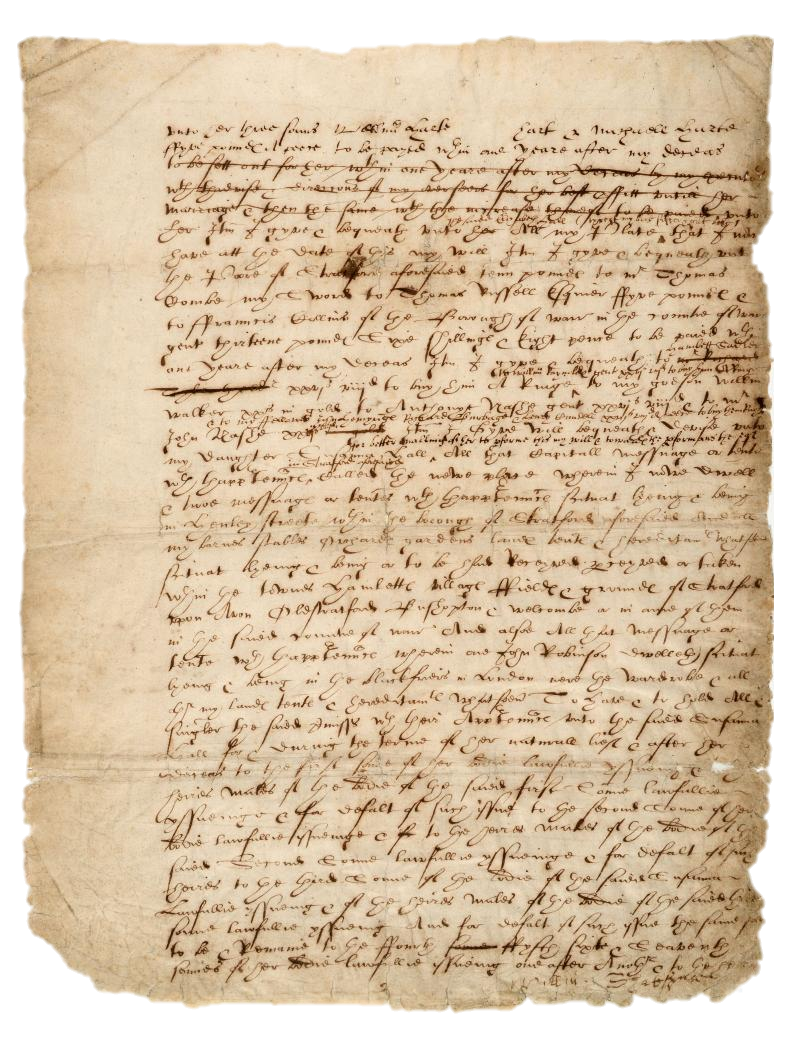 vnto her three sonns Willm̄ Harte          Hart & Michaell Harte
ffyve pounds A peece to be payed wthin one yeare after my deceas
to be sett out for her wthin one yeare after my deceas by my executors
wth thadvise & direccons of my overseers for her best proffitt vntill her
marriage & then the same wth the increase thereof to be paied vnto
her Itm I gyve & bequeath vnto her All my Plate that I now
have att the date of this my will Itm I gyve & bequeath vnto
the Poore of Stratford aforesaied tenn pounds to mr Thomas
Combe my Sword to Thomas Russell Esquier ffyve pounds &
to ffrauncis Collins of the Borough of warr in the countie of warr
gent thirteene pounds Sixe shillinges & Eight pence to be paied wthin
Hamlett Sadler
one yeare after my deceas Itm I gyve & bequeath to mr Richard
to Willm Raynoldes gent xxvjs viijd to buy him A Ringe
xxvjs viijd to buy him A Ringe to my godson Willm
Walker xxs in gold to Anthonye Nashe gent xxvjs viijd & to mr
& to my ffellowes John Hemynge Richard Burbage & Henry Cundell xxvjs viijd A peece to buy them Ringes
John Nashe xxvjs viijd Itm I Gyve Will bequeath & Devise vnto
for better enabling of her to pforme this my will & towardes the pformans thereof
my Daughter Susanna Hall All that Capitall messuage or tente
in Stratford aforesaied
wth thapptennce Called the newe place wherein I nowe Dwell
& twoe messuages or tentes wth thapptennce scituat lyeing & being
in Henley streete wthin the borough of Stratford aforesaied And all
my barnes stables Orchardes gardens landes tentes & hereditamtes whatsoeu
scituat lyeing & being or to be had Receyved pceyved or taken
wthin the townes Hamlettes villages ffieldes & groundes of Stratford
vpon Avon Oldstratford Bushopton & welcombe or in anie of them
in the saied countie of warr And alsoe All that messuage or
tente wth thapptennce wherein one John Robinson dwelleth scituat
lyeing & being in the blackfriers in London nere the Wardrobe & all
othr my landes tentes & hereditamtes whatsoeu To have & to hold All &
singler the saied pmisss wth their Apptennce vnto the saied Susanna
Hall for & During the terme of her naturall lief & after her
deceas to the first sonne of her bodie lawfullie yssueing & to the
heires males of the bodie of the saied first Sonne lawfullie
yssueinge & for defalt of such issue to the second Sonne of her
bodie lawfullie issueinge & to the heires males of the bodie of the
saied Second Sonne lawfullie yssueinge & for defalt of such
heires to the third Sonne of the bodie of the saied Susanna
Lawfullie yssueing & of the heires males of the bodie of the saied third
sonne lawfullie yssueing And for defalt of such issue the same soe
to be & Remaine to the ffourth sonne ffyfth sixte & Seaventh
sonnes of her bodie lawfullie issueing one after Another & to the heires